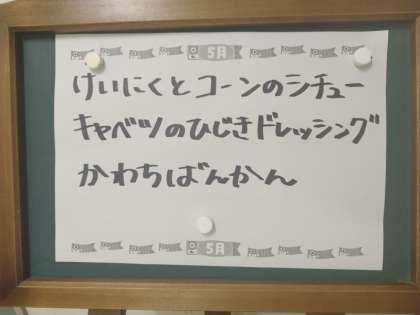 5月
けいにくとコーンのシチュー
キャベツのひじきドレッシング
かわちばんかん
5月